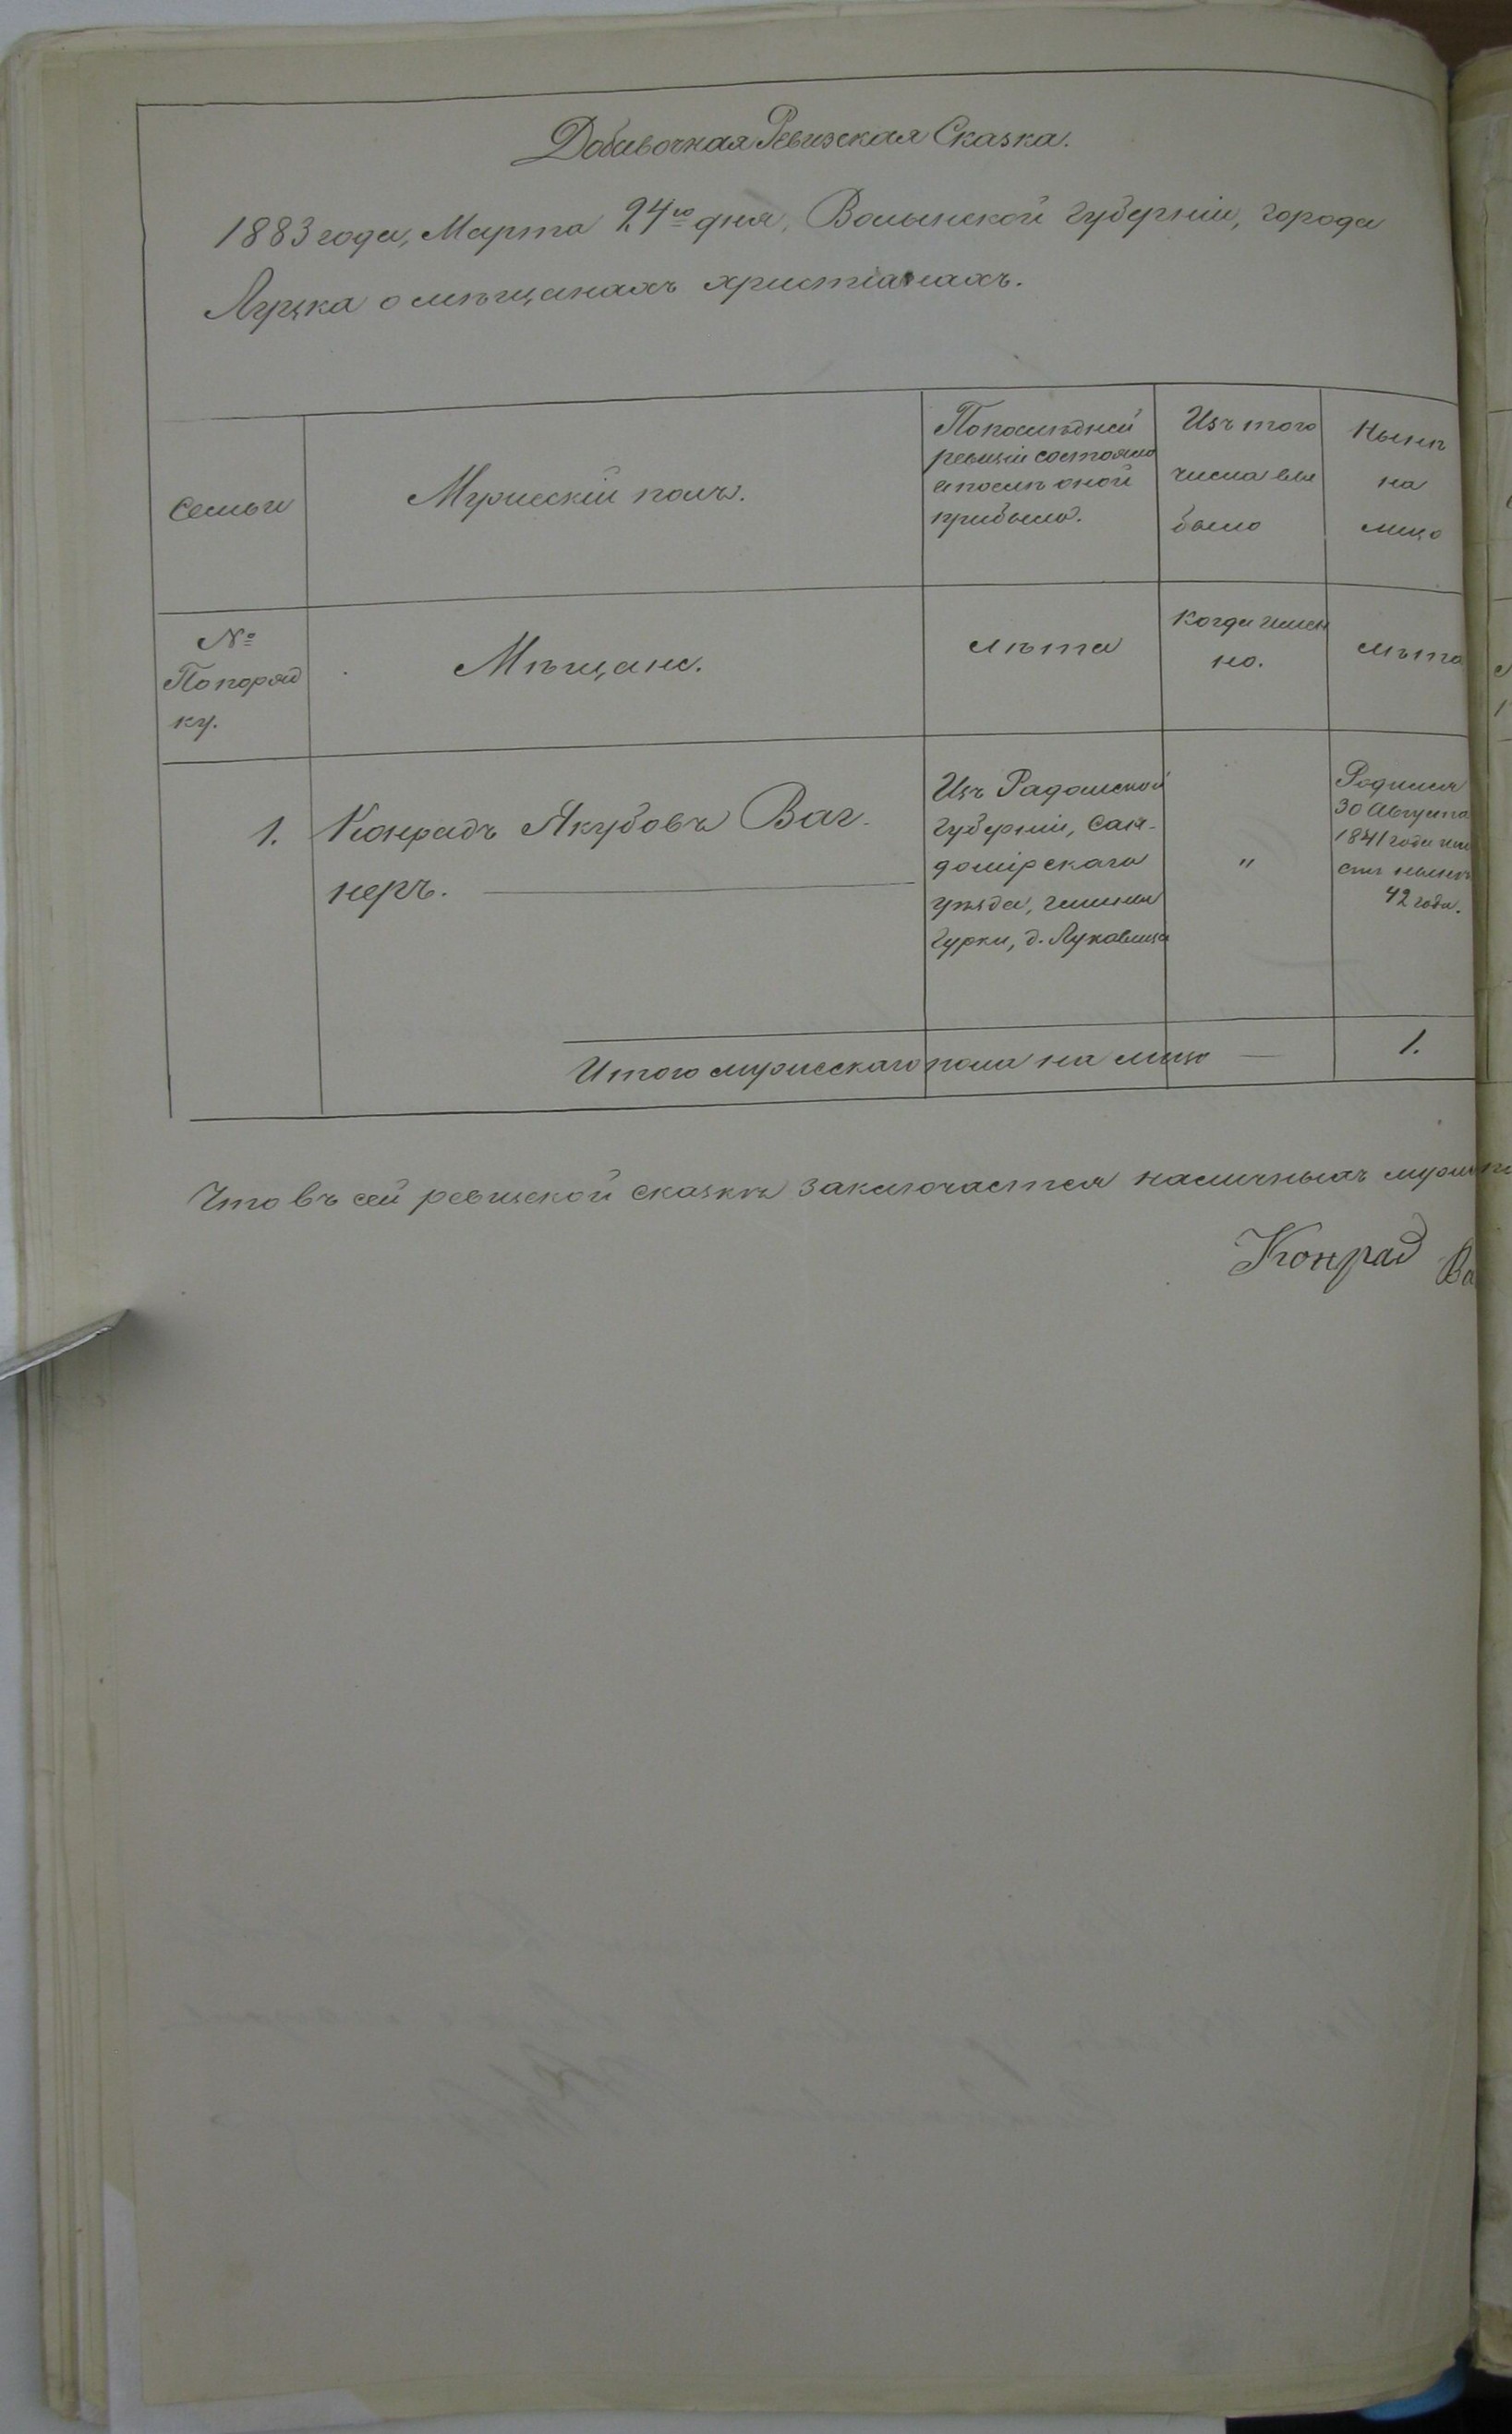 Добавочная Ревизская Сказка.
1883 года, Марта 24го дня, Волынской губерніи, города
Луцка о мѣщанахъ христіанахъ.
Семьи
Мужескій полъ.
По послѣдней
ревизіи состояло
и послѣ оной
прибыло.
Изъ того
числа вы
было
Нынѣ
на
лицо
№
По поряд
ку.
Мѣщане.
лѣта
Когда имен
но.
лѣта
1.
Конрадъ Якубовъ Ваг-
неръ.
Изъ Радомской
губерніи, Сан-
домірскаго
уѣзда, гмины
Гурки, д. Лукавица
"
Родился
30 Августа
1841 года
нынѣ
42 года.
Итого мужескаго пола на лицо — 1.
Что въ сей ревизской сказкѣ заключается наличныхъ
Конрад Ва